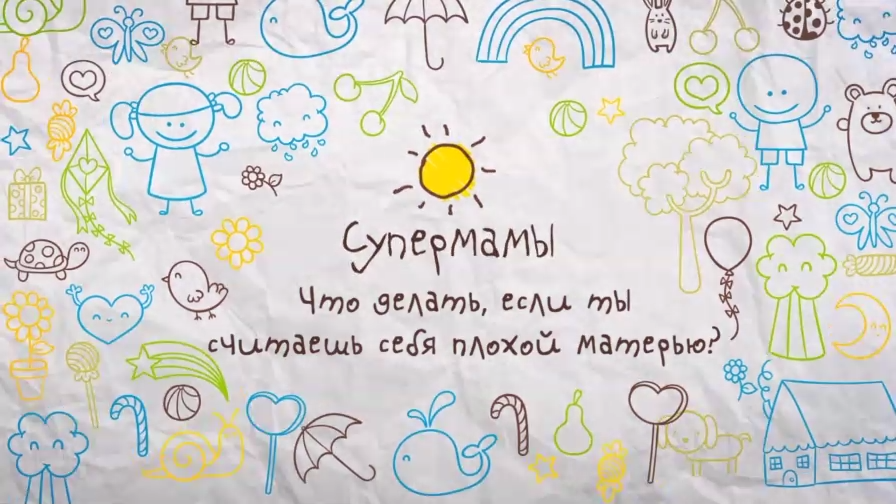 Супермамы
Что делать, если ты
считаешь себя плохой матерью?